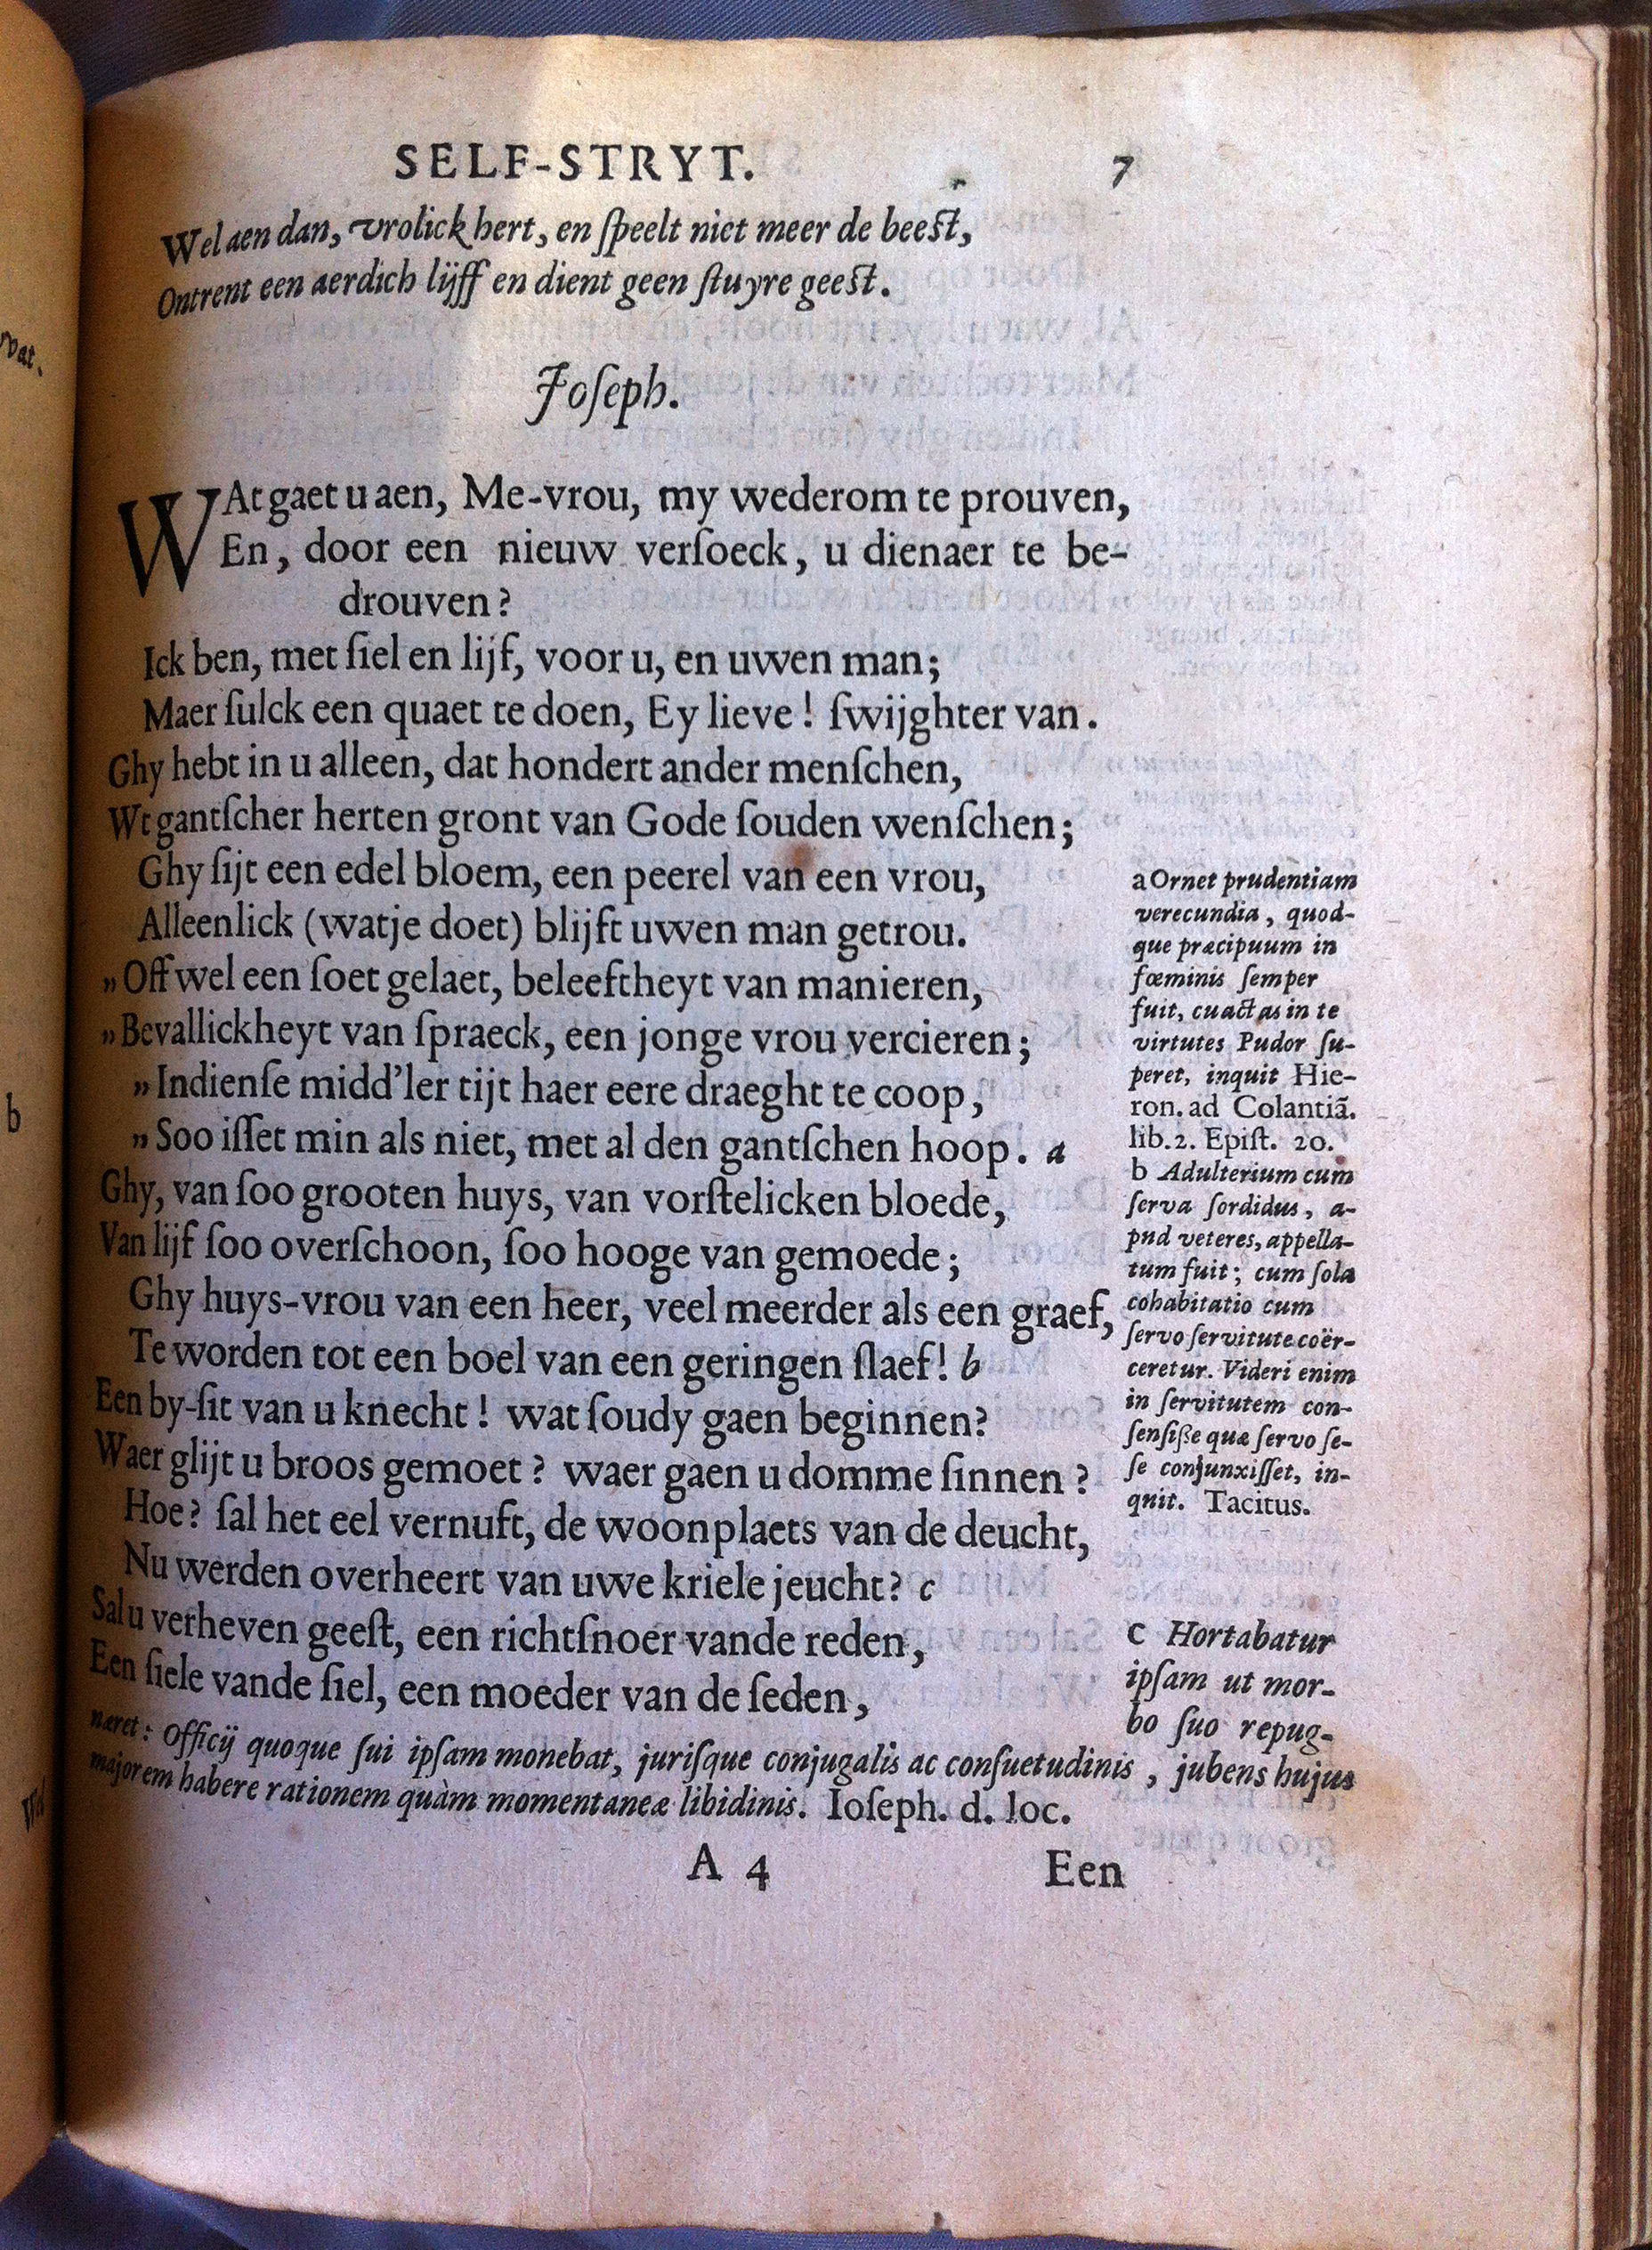 SELF-STRYT. 7
Wel aen dan, vrolick hert, en ſpeelt niet meer de beeſt,
Ontrent een aerdich lijff en dient geen ſtuyre geeſt.
Joſeph.
WAt gaet u aen, Me-vrou, my wederom te prouven,
En, door een nieuw verſoeck, u dienaer te be-
drouven?
Ick ben, met ſiel en lijf, voor u, en uwen man;
Maer ſulck een quaet te doen, Ey lieve! ſwijghter van.
Ghy hebt in u alleen, dat hondert ander menſchen,
Wt gantſcher herten gront van Gode ſouden wenſchen;
Ghy ſijt een edel bloem, een peerel van een vrou,
Alleenlick (watje doet) blijft uwen man getrou.
„Off wel een ſoet gelaet, beleeftheyt van manieren,
„Bevallickheyt van ſpraeck, een jonge vrou vercieren;
„Indienſe midd'ler tijt haer eere draeght te coop,
„Soo iſſet min als niet, met al den gantſchen hoop. a
Ghy, van ſoo grooten huys, van vorſtelicken bloede,
Van lijf ſoo overſchoon, ſoo hooge van gemoede;
Ghy huys-vrou van een heer, veel meerder als een graef,
Te worden tot een boel van een geringen ſlaef! b
Een by-ſit van u knecht! wat ſoudy gaen beginnen?
Waer glijt u broos gemoet? waer gaen u domme ſinnen?
Hoe? ſal het eel vernuft, de woonplaets van de deucht,
Nu werden overheert van uwe kriele jeucht? c
Sal u verheven geeſt, een richtſnoer vande reden,
Een ſiele vande ſiel, een moeder van de ſeden,
a Ornet prudentiam
verecundia, quod-
que præcipuum in
fœminis ſemper
fuit, cuactas in te
virtutes Pudor ſu-
peret, inquit Hie-
ron. ad Colantiã.
lib. 2. Epiſt. 20.
b Adulterium cum
ſerva ſordidus, a-
pud veteres, appella-
tum fuit; cum ſola
cohabitatio cum
ſervo ſervitute coër-
ceretur. Videri enim
in ſervitutem con-
ſenſiße quæ ſervo ſe-
ſe conjunxiſſet, in-
quit. Tacitus.
c Hortabatur
ipſam ut mor-
bo ſuo repug-
naret: Officij quoque ſui ipſam monebat, juriſque conjugalis ac conſuetudinis, jubens hujus
majorem habere rationem quàm momentaneæ libidinis. Ioſeph. d. loc.
A 4 Een
b